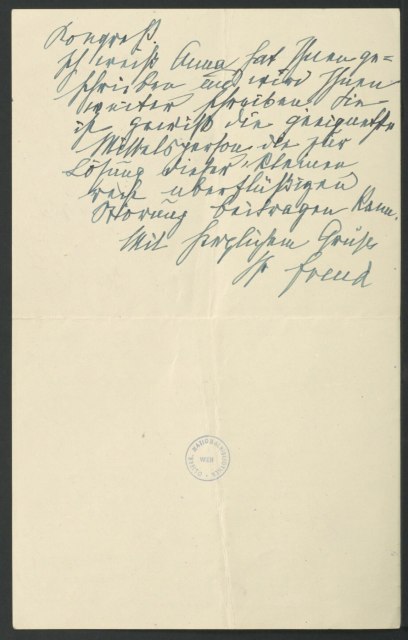 Kongreß.
Ich weiß Anna hat Ihnen ge=
schrieben und wird Ihnen
weiter schreiben. Sie
ist gewiß die geeignetste
Mittelsperson, die zur
Lösung dieser kleinen
recht überflüßigen
Störung beitragen kann.
Mit herzlichem Gruß
Ihr Freud
NATIONALBIBLIOTHEK
WIEN